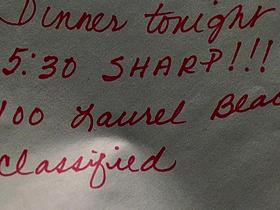 Dinner tonight
5:30 SHARP!!!
100 Laurel Beac
Classified